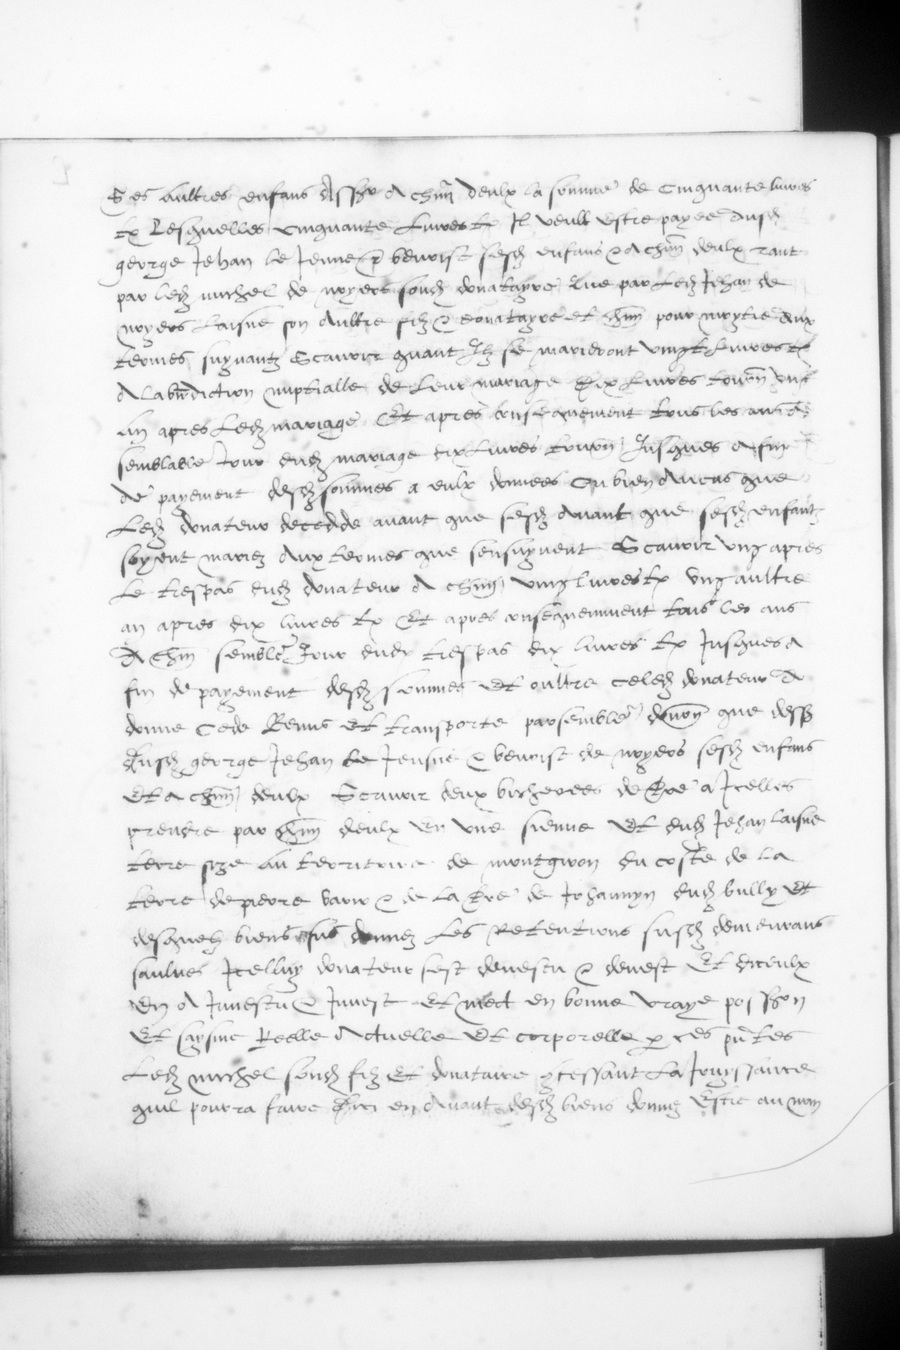 Ses aultres enfans assr a chun deulx la somme de cinquante livres
tz Lesquelles cinquante Livres tz Il veult estre payee ausd
george Jehan le Jeune et benoist sesd enfans & a chun deulx tant
par led michel de noyers sond donatayre que par Led Jehan de
noyers Laisne son aultre filz & donatayre et chun pour moytie aux
termes suyvantz Scavoir quant Ilz se marieront vingt Livres tz
A La bndiction nuptialle de Leur mariage dix Livres tourn ung
An apres Led mariage Et apres consequement tous les ans a
semblable Jour dud mariage dix Livres tourn Jusques a fin
de payement desd sommes a eulx donnees Ou bien au cas que
Led donateur decedde avant que sesd avant que sesd enfantz
soyent mariez Aux termes que sensuyvent Scavoir ung apres
Le trespas dud donateur A chun vingt livres tz ung aultre
an apres dix livres tz Et apres consequemment tous les ans
A chun semble Jour dud trespas dix livres tz Jusques a
fin de payement desd sommes Et oultre ce led donateur a
donne Cede Remis Et transporte par semble donon que dess
Ausd george Jehan Le Jeusne & benoist de noyers sesd enfans
Et a chun deulx Scavoir deux bicherees de tre a Icelles
prendre par chun deulx en une sienne Et dud Jehan laisne
terre size au territoire de montgiron du coste de La
terre de pierre & de La tre de Johannyn dud bully Et
desquelz biens sus donnez Les Retentions susd demeurans
saulves Icelluy donateur sest devestu & devest Et diceulx
En a Investu & Invest Et mect en bonne vraye posson
Et saysine Reelle Actuelle Et corporelle p ces pntes
Led michel sond filz Et donataire cessant La Jouyssance
quil pourra faire dicy en avant desd biens donnez Estre au nom